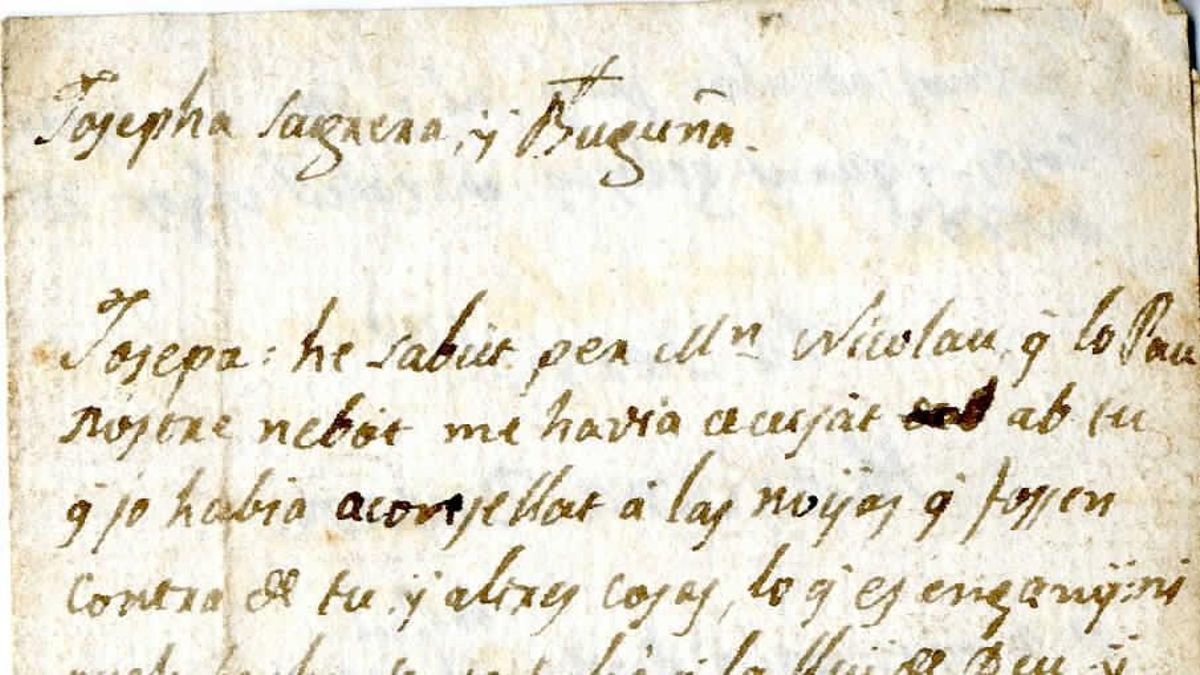 Josepha Sagrera, y Buguña.
Josepa: he sabut per Mn Nicolau, q̃ lo Pau
nostre nebot me havia acusat ab tu
q̃ jo habia aconsellat á las noÿas q̃ fossen
contra de tu, ÿ altres cosas, lo q̃ es enganÿ: ni
la llei de Deu, ÿ